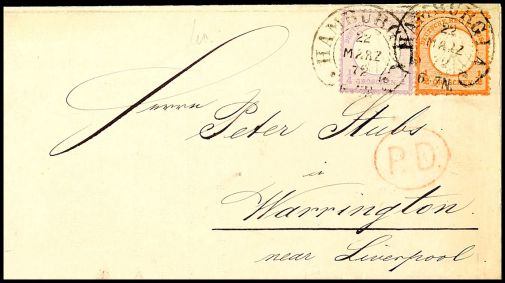 HAMBURG I.A.
22
MÄRZ
72
HAMBURG I.A.
22
MÄRZ
72
6-7N.
Herrn
Peter Stubs.
in
P.D.
Warrington.
near Liverpool.